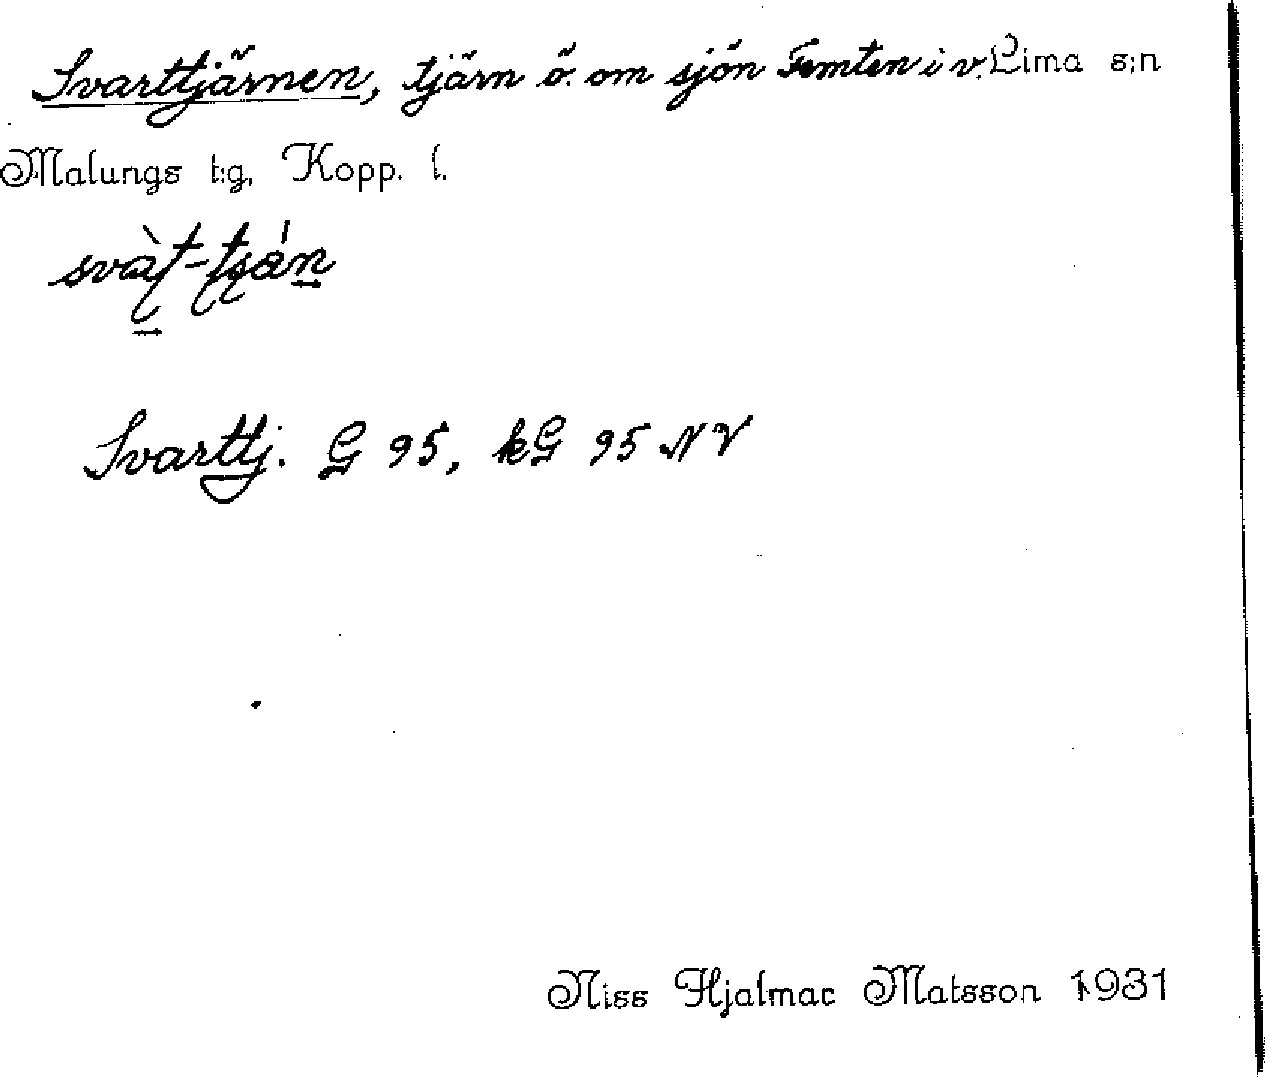 Svarttjärnen, tjärn ö. om sjön Femten i v. Lima s:n
Malungs t:g, Kopp. l.
Svarttj. G 95, kG 95 NV
Niss Hjalmar Matsson 1931